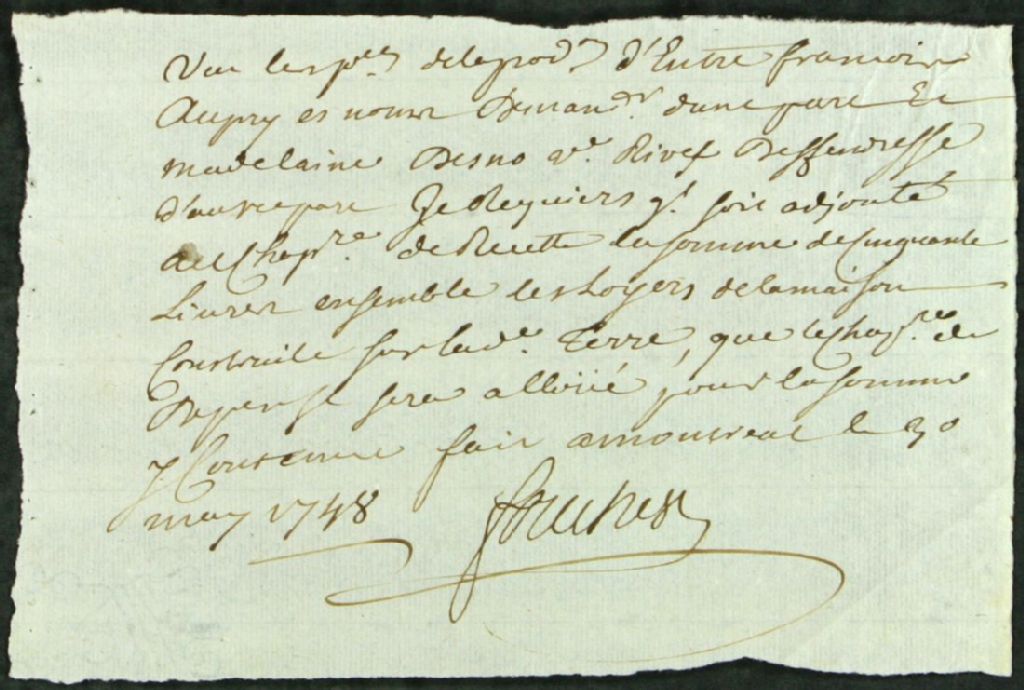 Veu les pces delaprodre d'Entre francois
Aupry es noms Demandr. dune part Et
madelaine Desno ve. Rivet Deffendresse
d'autrepart Je Requiers q. soit adjouté
au Chapre. de Recette lasomme decinquante
Livres ensemble les Loyers delamaison
Construite sur lade. Terre, que lechapre. de
Depense sera alloüé, pour lasomme
y Contenue fait amontreal le 30
may 1748 foucher